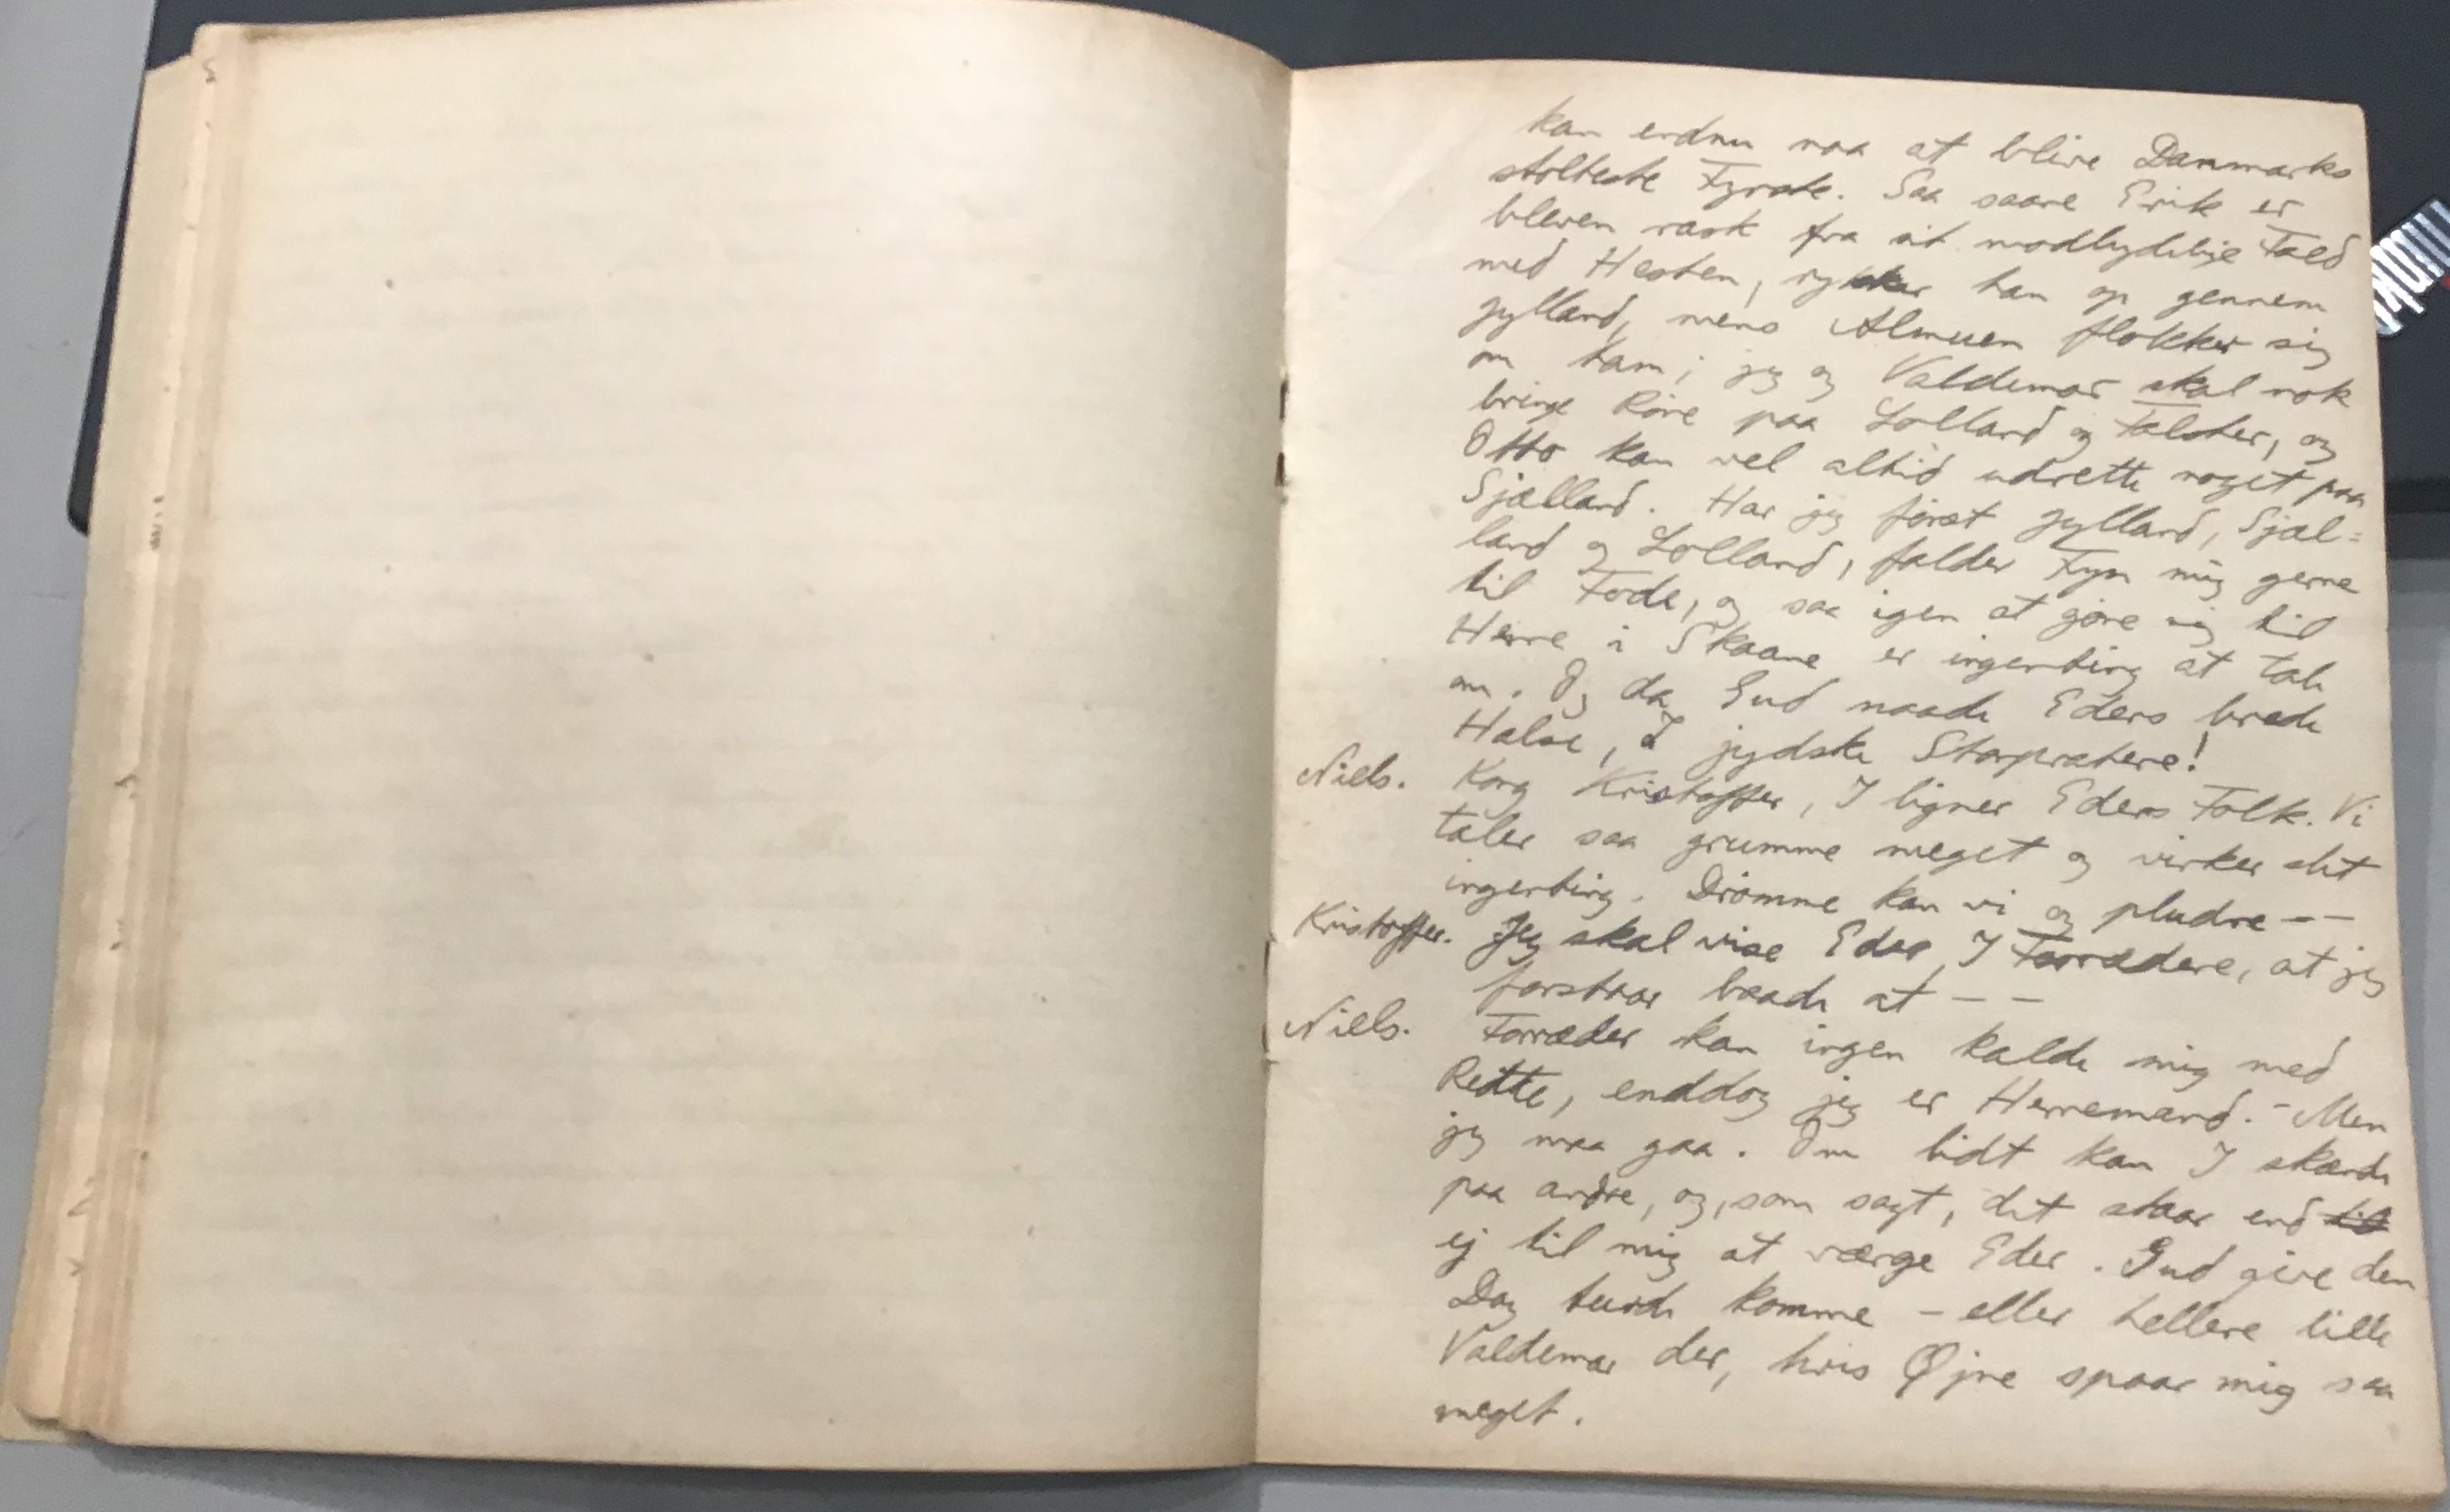 kan endnu naa at blive Danmarks
stolteste Fyrste. Saa saare Erik er
bleven rask fra sit modbydelige Fald
med Hesten, rykker han op gennem
Jylland, mens Almuen flokker sig
om ham; jeg og Valdemar skal nok
bringe Røre paa Lolland og Falster, og
Otto kan vel altid udrette noget paa
Sjælland. Har jeg først Jylland, Sjæl=
land og Lolland, falder Fyn mig gerne
til Fode, og saa igen at gøre sig til
Herre i Skaane er ingenting at tale
om. Og da Gud naade Eders brede
Halse, I jydske Storpratere!
Niels. Kong Kristoffer, I ligner Eders Folk. Vi
taler saa grumme meget og virker slet
ingenting. Drømme kan vi og pludre --
Kristoffer. Jeg skal vise Eder, I Forrædere, at jeg
forstaar baade at --
Niels. Forræder kan ingen kalde mig med
Rette, enddog jeg er Herremand. - Men
jeg maa gaa. Om lidt kan I skænde
paa andre, og, som sagt, det staar end
ej til mig at værge Eder. Gud give den
Dag turde komme - eller hellere lille
Valdemar der, hvis Øjne spaar mig saa
meget.